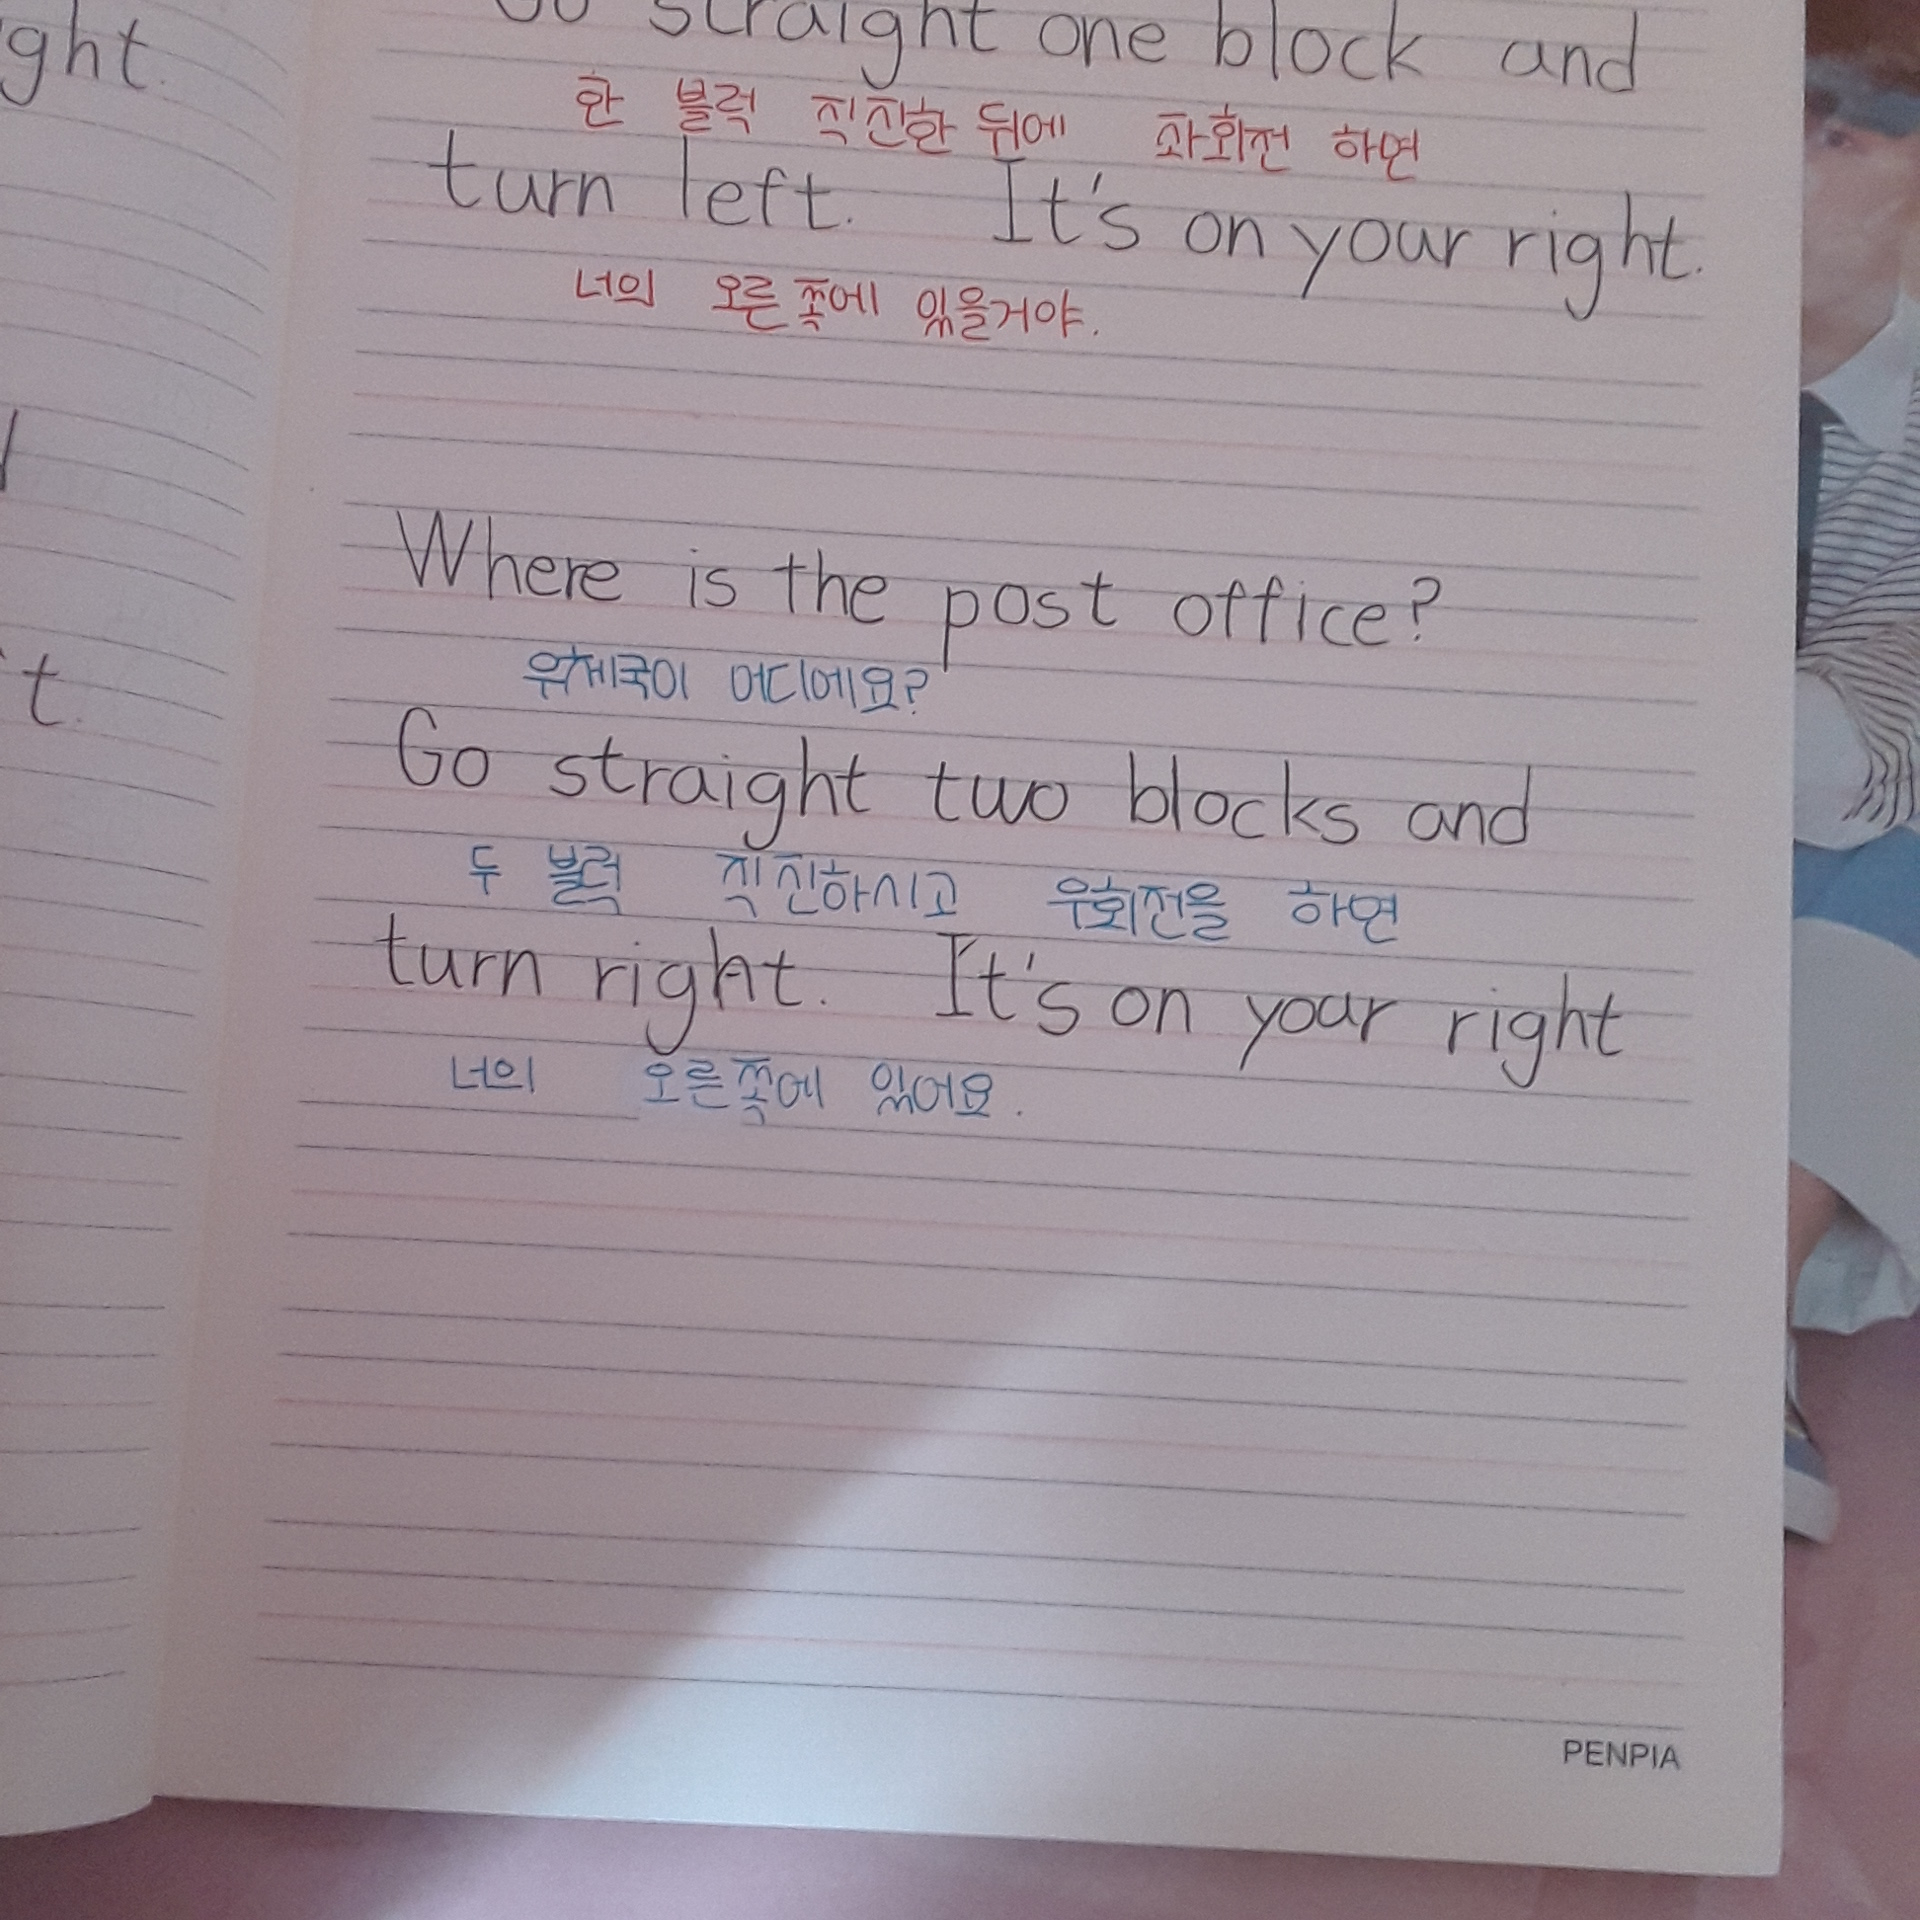 ght.
Go straight one block and
한 블럭 직진한 뒤에 좌회전 하면
turn left. It's on your right.
너의 오른쪽에 있을거야.
Where is the post office?
우체국이 어디에요?
Go straight two blocks and
두 블럭 직진하시고 우회전을 하면
t.
turn right. It's on your right
너의 오른쪽에 있어요.
PENPIA